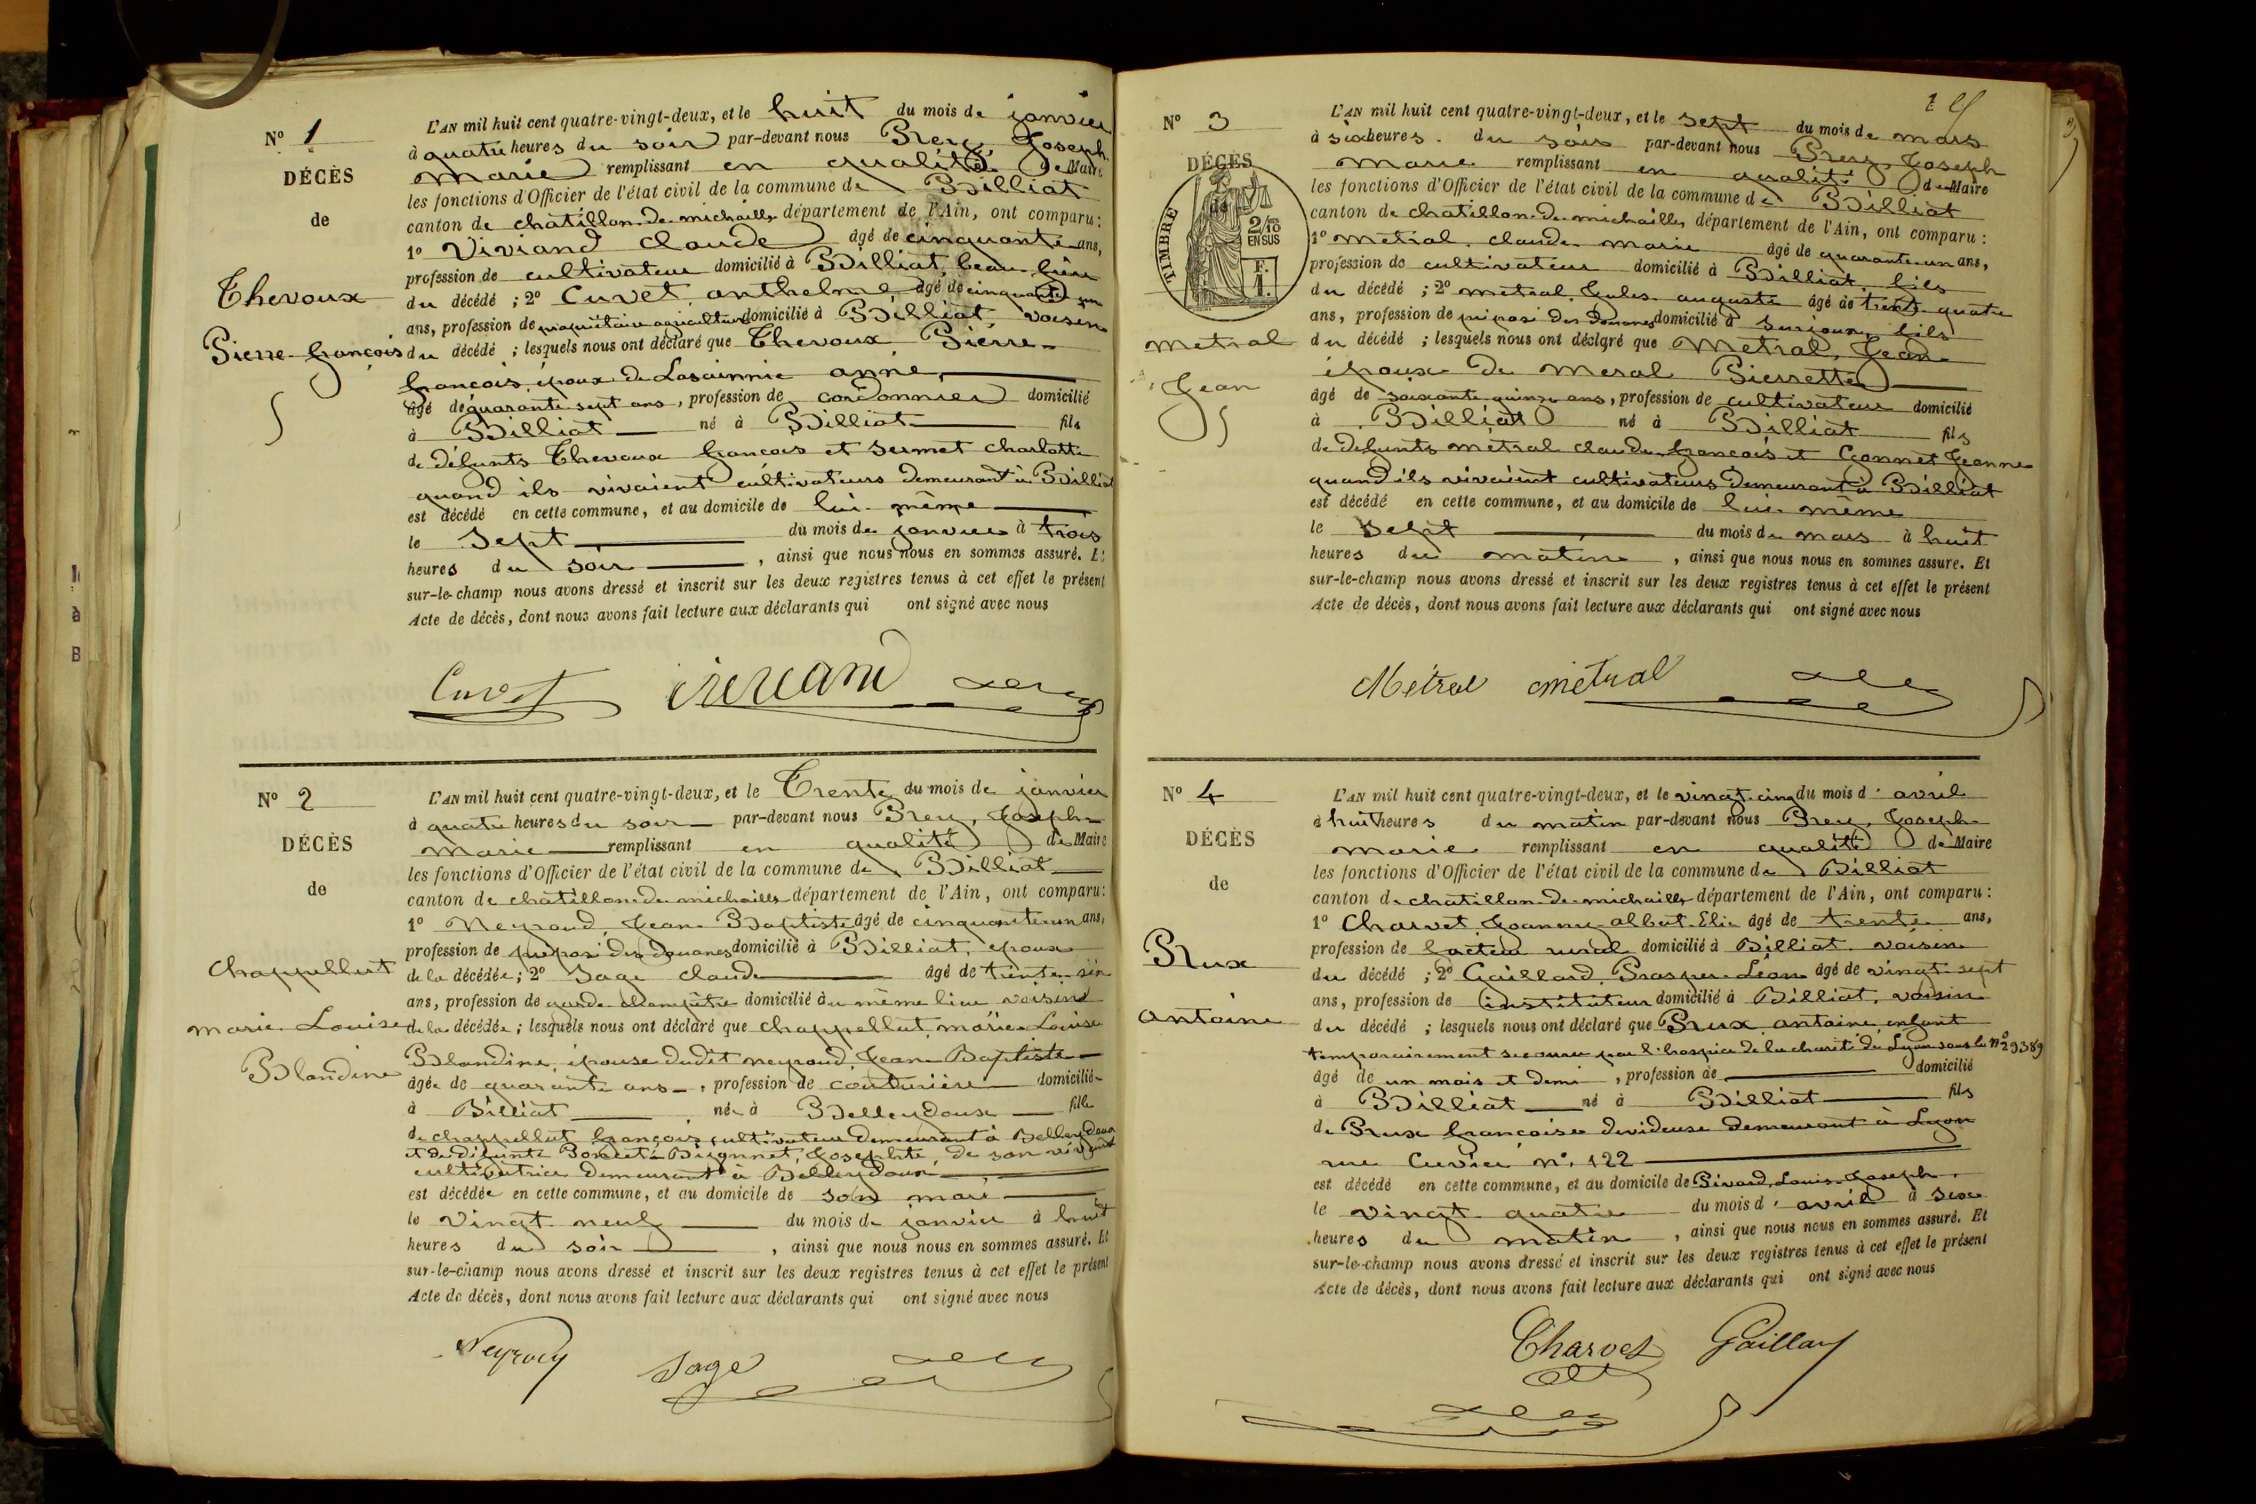 N° 1
DÉCÈS
de
Thevoux
Pierre-françois
L'AN mil huit cent quatre-vingt-deux, et le huit du mois de janvier
à quatre heures du soir par-devant nous Prery, Joseph
Marie remplissant en qualité de Maire
les fonctions d'Officier de l'état civil de la commune de Billiat
canton de chatillon-de-michaille département de l'Ain, ont comparu :
1° Viviand Claude âgé de cinquante ans,
profession de cultivateur domicilié à Billiat, beau-frère
du décédé ; 2° Cuvet anthelme âgé de cinquante un
ans, profession de propriétaire agriculteur domicilié à Billiat voisin
du décédé ; lesquels nous ont déclaré que Thevoux Pierre-
françois, époux de anne,
âgé de quarante sept ans, profession de cordonnier domicilié
à Billiat né à Billiat fils
de défunts Thevoux françois et Sermet charlotte
quand ils vivaient cultivateurs demeurant à Billiat
est décédé en cette commune, et au domicile de lui-même
le Sept du mois de janvier à trois
heures du soir, ainsi que nous nous en sommes assuré. Et
sur-le-champ nous avons dressé et inscrit sur les deux registres tenus à cet effet le présent
Acte de décès, dont nous avons fait lecture aux déclarants qui ont signé avec nous
Cuvet viviand
N° 2
DÉCÈS
de
Chappellut
marie-Louise
Blandine
L'AN mil huit cent quatre-vingt-deux, et le Trente du mois de janvier
à quatre heures du soir par-devant nous Prery, Joseph
Marie remplissant en qualité de Maire
les fonctions d'Officier de l'état civil de la commune de Billiat
canton de chatillon-de-michaille département de l'Ain, ont comparu :
1° Neyroud, Jean Baptiste âgé de cinquante un ans,
profession de préposé des douanes domicilié à Billiat, époux
de la décédée ; 2° Sage claude âgé de trente-six
ans, profession de garde champêtre domicilié au même lieu voisin
de la décédée ; lesquels nous ont déclaré que chappellut, marie-Louise
Blandine, épouse dudit neyroud, Jean-Baptiste
âgée de quarante ans, profession de couturière domiciliée
à Billiat née à Belleydoux fille
de chappellut françois cultivateur demeurant à Belleydoux
et de défunte Josephte, de son vivant
cultivatrice demeurant à Belleydoux
est décédée en cette commune, et au domicile de son mari
le vingt-neuf du mois de janvier à huit
heures du soir, ainsi que nous nous en sommes assuré. Et
sur-le-champ nous avons dressé et inscrit sur les deux registres tenus à cet effet le présent
Acte de décès, dont nous avons fait lecture aux déclarants qui ont signé avec nous
Neyroud Sage
N° 3
DÉCÈS
TIMBRE
2/10
EN SUS
F.
1.
metral
Jean
L'AN mil huit cent quatre-vingt-deux, et le sept du mois de mars
à six heures du soir par-devant nous Prery Joseph
Marie remplissant en qualité de Maire
les fonctions d'Officier de l'état civil de la commune de Billiat
canton de chatillon-de-michaille, département de l'Ain, ont comparu :
1° metral claude marie âgé de quarante-un ans,
profession de cultivateur domicilié à Billiat, fils
du décédé ; 2° metral Jules auguste âgé de trente-quatre
ans, profession de préposé des douanes domicilié à Surjoux, fils
du décédé ; lesquels nous ont déclaré que Metral, Jean
époux de meral Pierrette
âgé de soixante-quinze ans, profession de cultivateur domicilié
à Billiat né à Billiat fils
de défunts metral claude-françois et Jeanne
quand ils vivaient cultivateurs demeurant à Billiat
est décédé en cette commune, et au domicile de lui-même
le sept du mois de mars à huit
heures du matin, ainsi que nous nous en sommes assuré. Et
sur-le-champ nous avons dressé et inscrit sur les deux registres tenus à cet effet le présent
Acte de décès, dont nous avons fait lecture aux déclarants qui ont signé avec nous
Métral métral
N° 4
DÉCÈS
de
Prux
antoine
L'AN mil huit cent quatre-vingt-deux, et le vingt-cinq du mois d'avril
à huit heures du matin par-devant nous Prery, Joseph
Marie remplissant en qualité de Maire
les fonctions d'Officier de l'état civil de la commune de Billiat
canton de chatillon-de-michaille, département de l'Ain, ont comparu :
1° Charvet Joanny-albert-Elie âgé de trente ans,
profession de facteur rural domicilié à Billiat voisin
du décédé ; 2° Gaillard Prosper-Léon âgé de vingt-sept
ans, profession de instituteur domicilié à Billiat, voisin
du décédé ; lesquels nous ont déclaré que Prux antoine enfant
temporairement secouru par l'hospice de la charité de Lyon sous le n° 29389
âgé de un mois et demi, profession de domicilié
à Billiat né à Billiat fils
de Prux françoise devideuse demeurant à Lyon
rue Cuvier n°. 122
est décédé en cette commune, et au domicile de Pivard, Louis-Joseph
le vingt-quatre du mois d'avril à six
heures du matin, ainsi que nous nous en sommes assuré. Et
sur-le-champ nous avons dressé et inscrit sur les deux registres tenus à cet effet le présent
Acte de décès, dont nous avons fait lecture aux déclarants qui ont signé avec nous
Charvet Gaillard